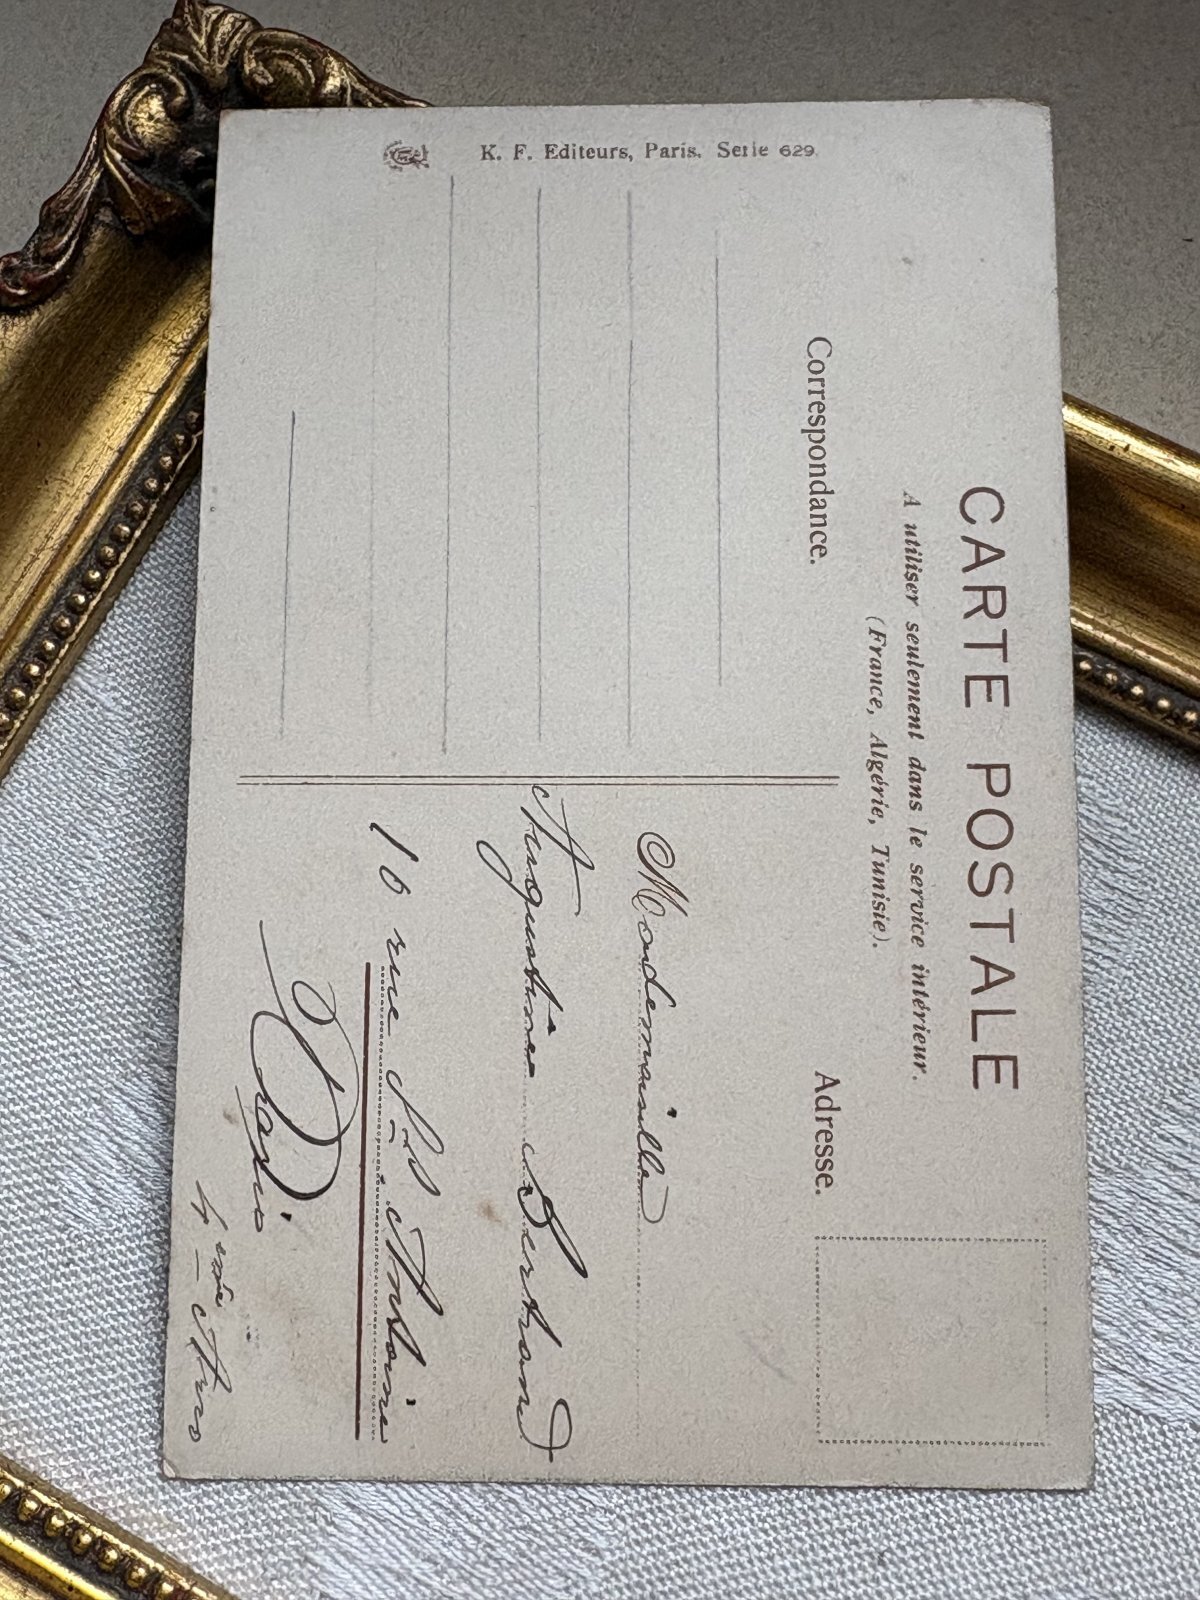 K. F. Editeurs, Paris. Serie 629
CARTE POSTALE
A utiliser seulement dans le service intérieur.
(France, Algérie, Tunisie).
Correspondance.
Adresse.
Mademoiselle
Augustine Bertrand
16 rue St Antoine
Paris
4eme Arro